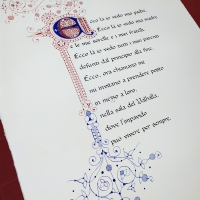 Ecco là io vedo mio padre,
Ecco là io vedo mia madre
e le mie sorelle e i miei fratelli.
Ecco là io vedo tutti i miei parenti
defunti dal principio alla fine.
Ecco, ora chiamano me
mi invitano a prendere posto
in mezzo a loro,
nella sala del Valhalla,
dove l'impavido
può vivere per sempre.